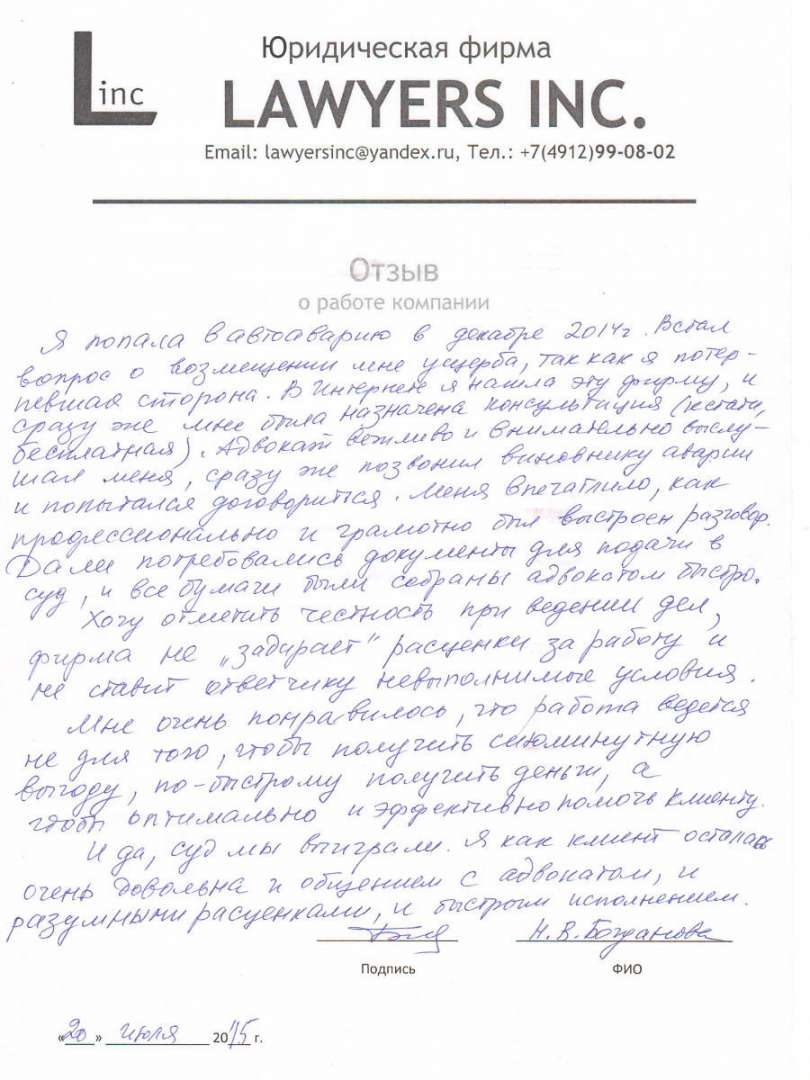 Linc
Юридическая фирма
LAWYERS INC.
Email: lawyersinc@yandex.ru, Тел.: +7(4912)99-08-02
Отзыв
о работе компании
Я попала в автоаварию в декабре 2014г. Встал
вопрос о возмещении мне ущерба, так как я потер-
певшая сторона. В Интернете я нашла эту фирму, и
сразу же мне была назначена консультация (кстати,
бесплатная). Адвокат вежливо и внимательно выслу-
шал меня, сразу же позвонил виновнику аварии
и попытался договориться. Меня впечатлило, как
профессионально и грамотно был выстроен разговор.
Далее потребовались документы для подачи в
суд, и все бумаги были собраны адвокатом быстро.
Хочу отметить честность при ведении дел,
фирма не „задирает" расценки за работу и
не ставит ответчику невыполнимые условия.
Мне очень понравилось, что работа ведется
не для того, чтобы получить сиюминутную
выгоду, по-быстрому получить деньги, а
чтобы оптимально и эффективно помочь клиенту.
И да, суд мы выиграли. Я как клиент осталась
очень довольна и общением с адвокатом, и
разумными расценками, и быстрым исполнением.
Н.В.Богданова
Подпись ФИО
«20» июля 2015 г.